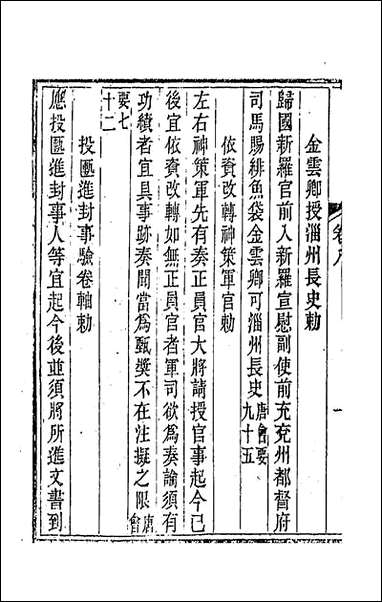 金雲卿授淄州長史勅
歸國新羅官前入新羅宣慰副使前充兗州都督府
司馬賜緋魚袋金雲卿可淄州長史唐會要九十五
依資改轉神策軍官勅
左右神策軍先有奏正員官大將請授官事起今已
後宜依資改轉如無正員官者軍司欲爲奏論須有
功績者宜具事跡奏聞當爲甄獎不在注擬之限唐會
要七十二
投匭進封事驗卷軸勅
應投匭進封事人等宜起今後並須將所進文書到